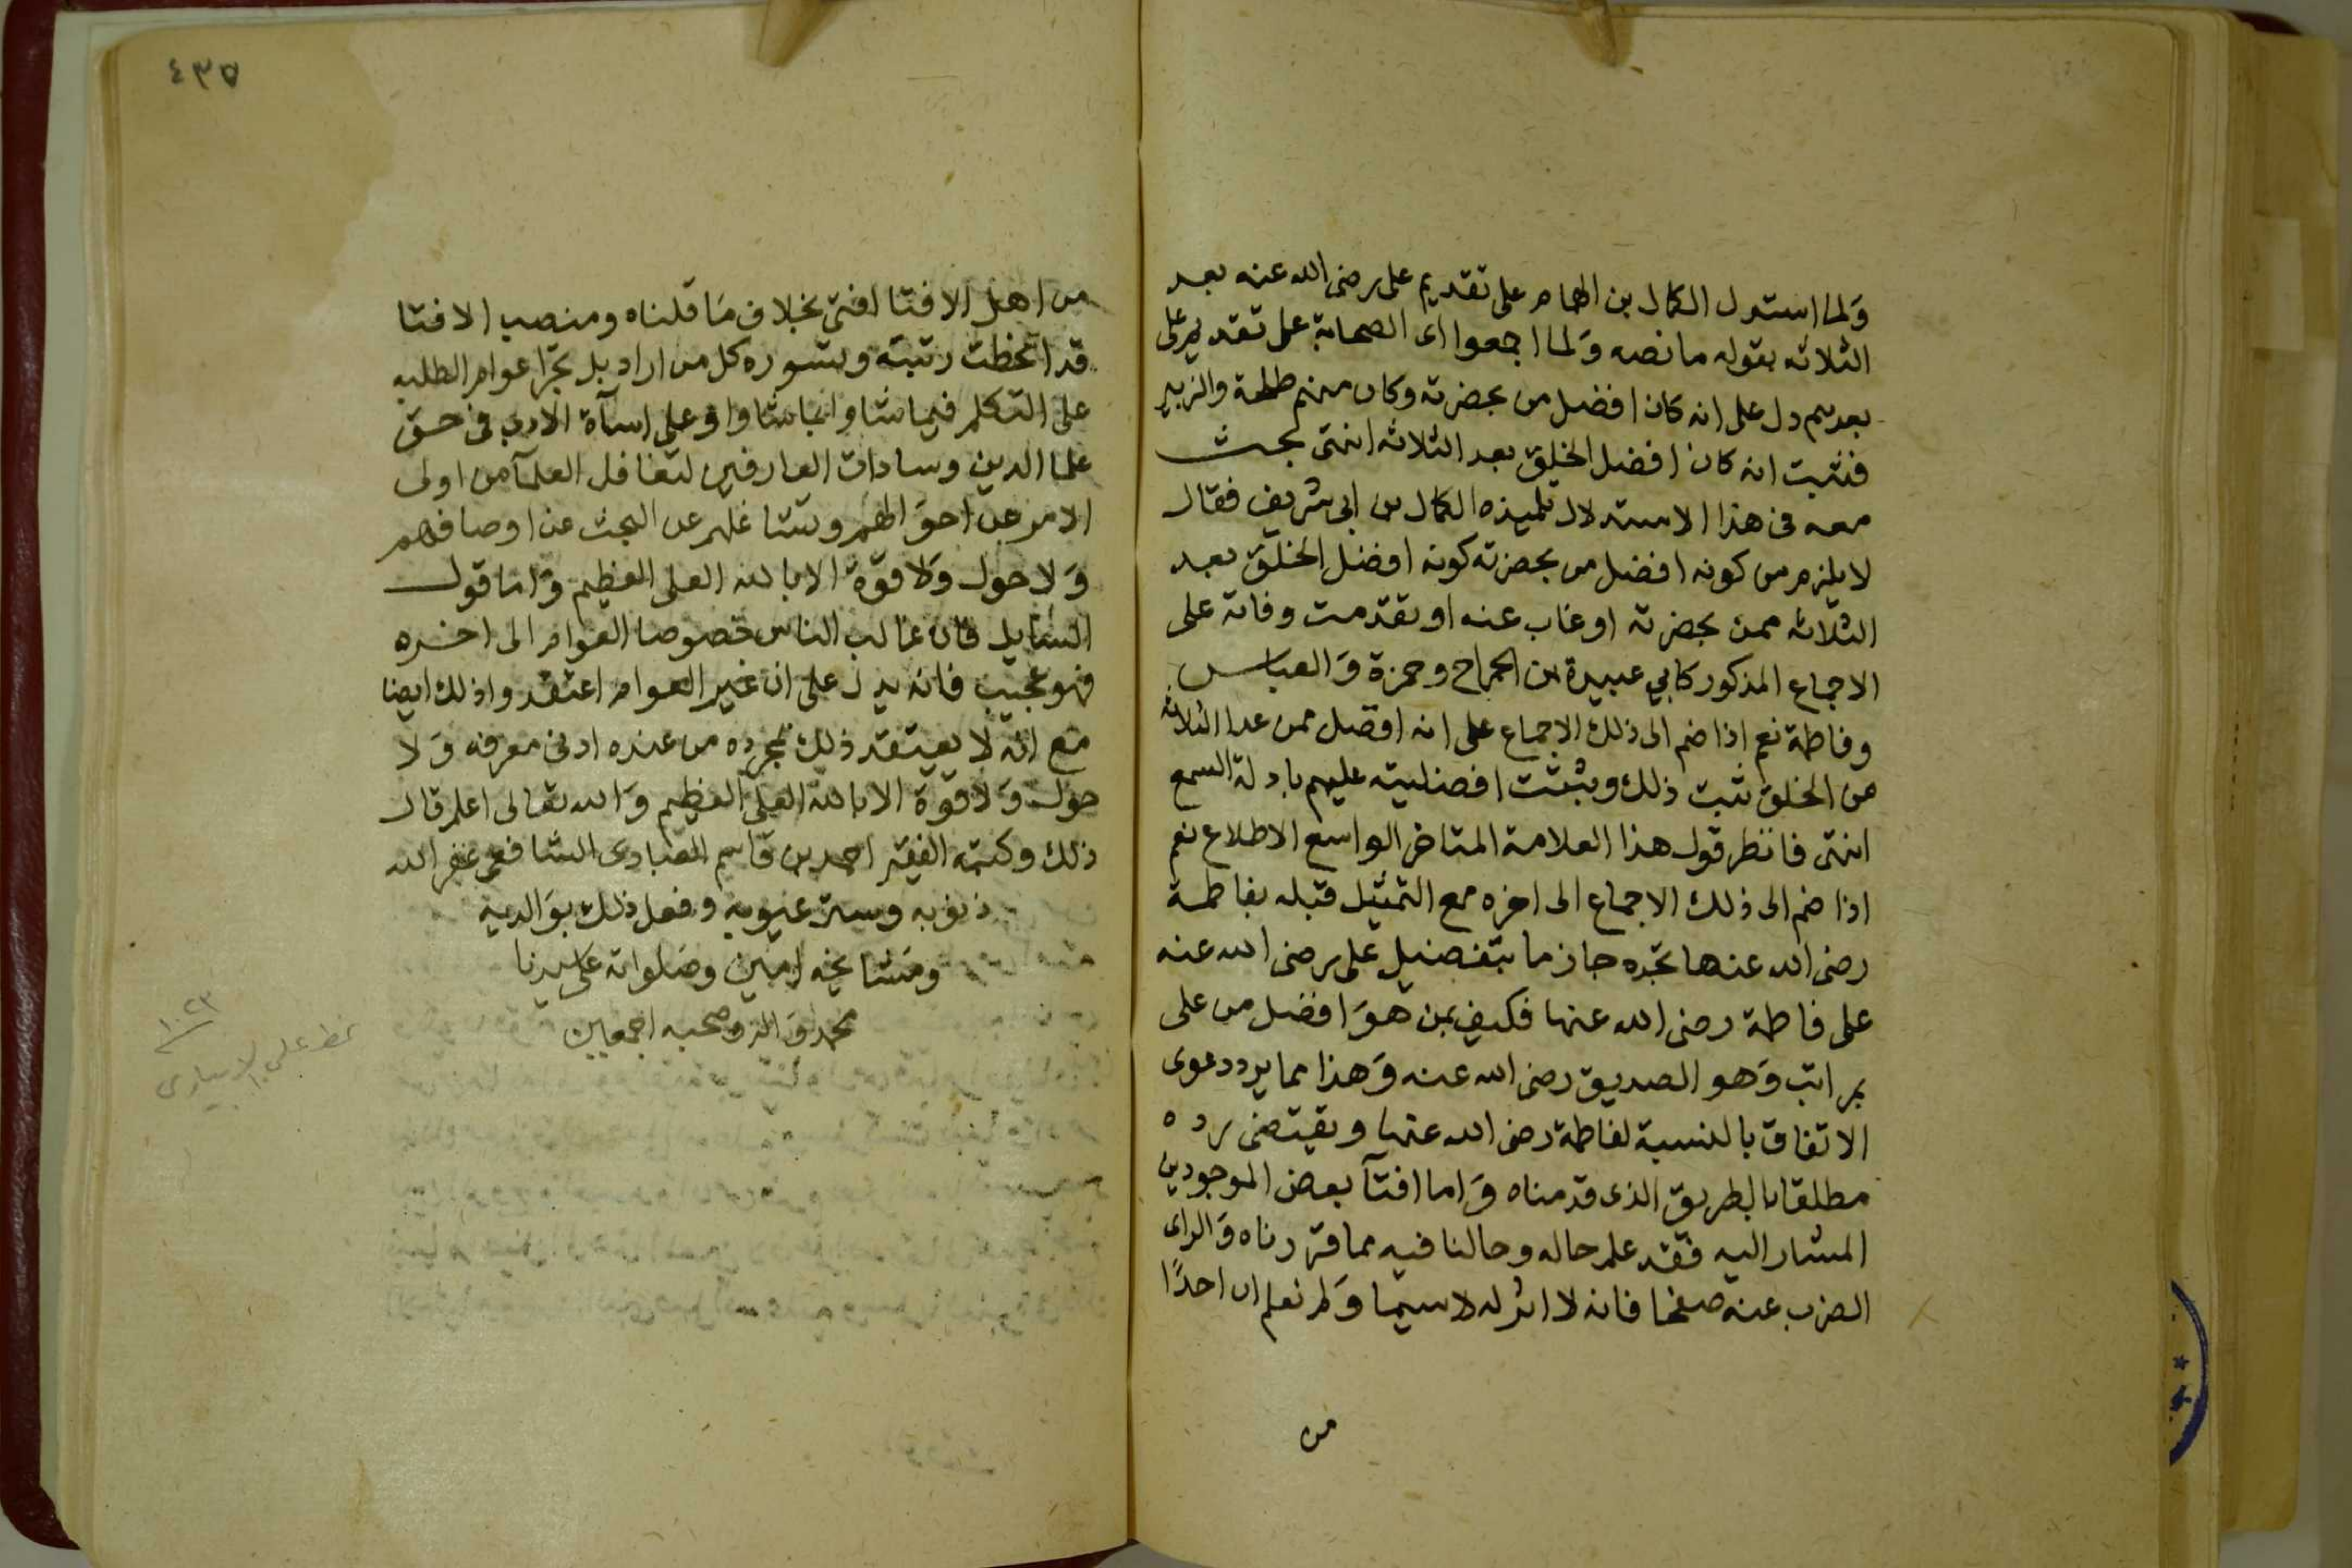 ولما استدل الكمال بن الهمام على تقديم على رضى الله عنه بعد
الثلاثه بقوله ما نصه ولما اجمعوا اى الصحابة على تقديم على
بعدهم دل على انه كان افضل من بحضرته وكان منهم طلحة والزبير
فثبت انه كان افضل الخلق بعد الثلاثه انتهى بحث
معه فى هذا الاستدلال تلميذه الكمال بن ابى شريف فقال
لا يلزم من كونه افضل من بحضرته كونه افضل الخلق بعد
الثلاثه ممن بحضرته او غاب عنه او تقدمت وفاته على
الاجماع المذكور كابي عبيدة بن الجراح وحمزة والعباس
وفاطمة نعم اذا ضم الى ذلك الاجماع على انه افضل ممن عدا الثلاثه
من الخلق ثبت ذلك ويثبت افضليته عليهم بادلة السمع
انتهى فانظر قول هذا العلامة المتاخر الواسع الاطلاع نعم
اذا ضم الى ذلك الاجماع الى اخره مع التمثيل قبله بفاطمة
رضى الله عنها تجده جازما بتفضيل على رضى الله عنه
على فاطمة رضى الله عنها فكيف بمن هو افضل من على
بمراتب وهو الصديق رضى الله عنه وهذا مما يرد دعوى
الاتفاق بالنسبة لفاطمة رضى الله عنها ويقتضى رده
مطلقا بالطريق الذى قدمناه واما افتآ بعض الموجودين
المشار اليه فقد علم حاله وحالنا فيه مما قررناه والراى
الضرب عنه صفحا فانه لا اثر له لا سيما ولم نعلم ان احدًا
من
٤٣٥
من اهل الافتا افتى بخلاف ما قلناه ومنصب الافتا
قد انحطت رتبته وتسوره كل من اراد بل تجرا عوام الطلبه
على التكلم فيما شاوا بما شاوا وعلى اسآة الادب فى حق
علما الدين وسادات العارفين لتغافل العلمآ من اولى
الامر عن احوالهم وتشاغلهم عن البحث عن اوصافهم
ولا حول ولا قوة الا بالله العلى العظيم واما قول
السايل فان غالب الناس خصوصا العوام الى اخره
فهو عجيب فانه يدل على ان غير العوام اعتقدوا ذلك ايضا
مع انه لا يعتقد ذلك بمجرده من عنده ادنى معرفه ولا
حول ولا قوة الا بالله العلى العظيم والله تعالى اعلم قال
ذلك وكتبه الفقير احمد بن قاسم العبادى الشافعى غفر الله
ذنوبه وستر عيوبه وفعل ذلك بوالديه
ومشايخه امين وصلواته على سيدنا
محمد واله وصحبه اجمعين
١٠٢٣
بخط على الابيارى